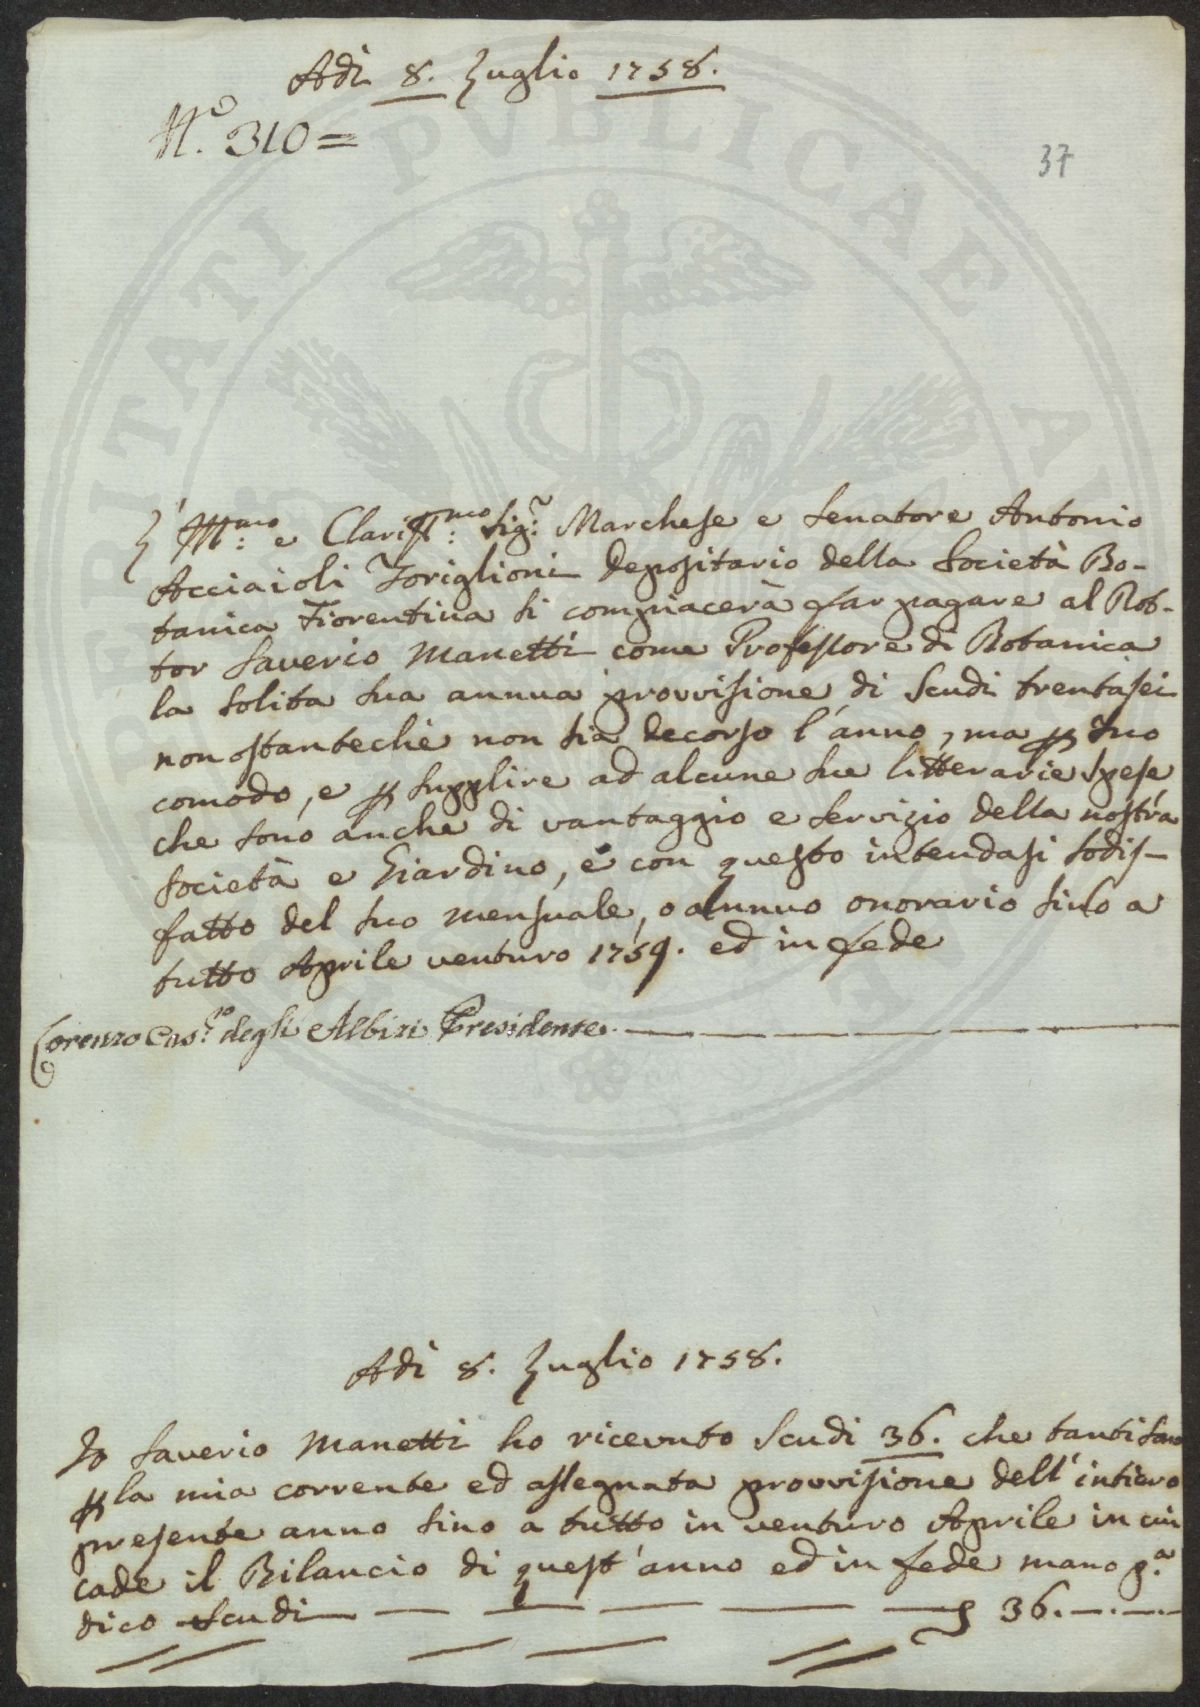 Adì 8. Luglio 1758.
N.o 310 =
37
L' Ill:mo e Clariss:mo Sig:r Marchese e Senatore Antonio
Acciaioli Toriglioni Depositario della Società Bo-
tanica Fiorentina si compiacerà far pagare al Dot-
tor Saverio Manetti come Professore di Botanica
la solita sua annua provvisione di Scudi trentasei
non ostantechè non sia decorso l'anno, ma p suo
comodo, e p supplire ad alcune sue litterarie spese
che sono anche di vantaggio e servizio della nostra
società e Giardino, e con questo intendasi sodis-
fatto del suo mensuale, o annuo onorario sino a
tutto Aprile venturo 1759. ed in fede
Lorenzo Gas.ro degli Albizi Presidente.
Adì 8. Luglio 1758.
Io Saverio Manetti ho ricevuto Scudi 36. che tanti sono
p la mia corrente ed assegnata provvisione dell'intiero
presente anno sino a tutto in venturo Aprile in cui
cade il Bilancio di quest'anno ed in fede mano p.a
dico Scudi 36.
PUBLICAE